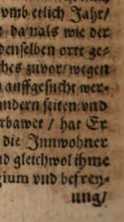 vmb etlich Jahr/
da nals wie der
denselben orte ge-
ches zuvor/ wegen
auffgesucht wer-
andern seiten vnd
rbawet / hat Er
die Innwohner
nd gleichwol ihme
gium vnd befrey-
ung/